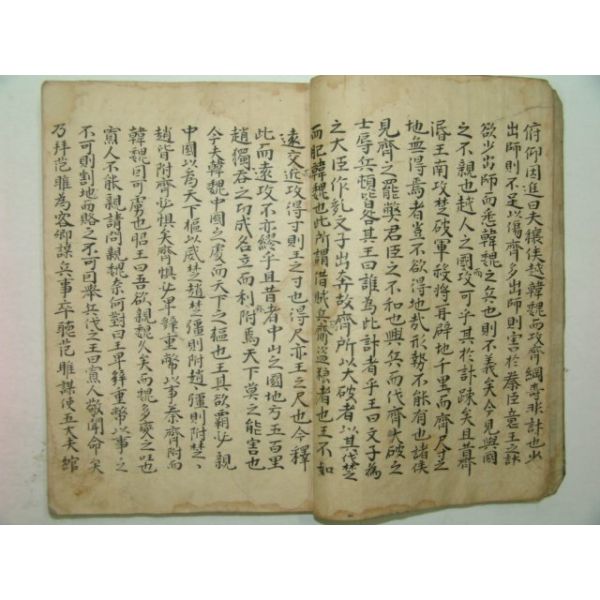 俯仰因進曰夫穰侯越韓魏而攻齊綱壽非計也少
出師則不足以傷齊多出師則害於秦臣意王之計
欲少出師而悉韓魏之兵也則不義矣今見與國
之不親也越人之國攻可乎其於計疎矣且昔齊
湣王南攻楚破軍殺將再辟地千里而齊尺寸之
地無得焉者豈不欲得地哉形勢不能有也諸侯
見齊之罷獘君臣之不和也興兵而伐齊大破之
士辱兵頓皆咎其王曰誰為此計者乎王曰文子為
之大臣作亂文子出奔故齊所以大破者以其伐楚
而肥韓魏也此所謂借賊兵齎盜粮者也王不如
遠交近攻得寸則王之寸也得尺亦王之尺也今釋
此而遠攻不亦繆乎且昔者中山之國地方五百里
趙獨吞之功成名立而利附焉天下莫之能害也
今夫韓魏中國之處而天下之樞也王其欲覇必親
中國以為天下樞以威楚趙楚彊則附趙趙彊則附楚楚
趙皆附齊必惧矣齊惧必卑辞重幣以事秦齊附而
韓魏因可虜也昭王曰吾欲親魏久矣而魏多變之囯也
寡人不能親請問親魏奈何對曰王卑辞重幣以事之
不可則割地而賂之不可因舉兵伐之王曰寡人敬聞命矣
乃拜范睢為客卿謀兵事卒聽范睢謀使五大夫綰